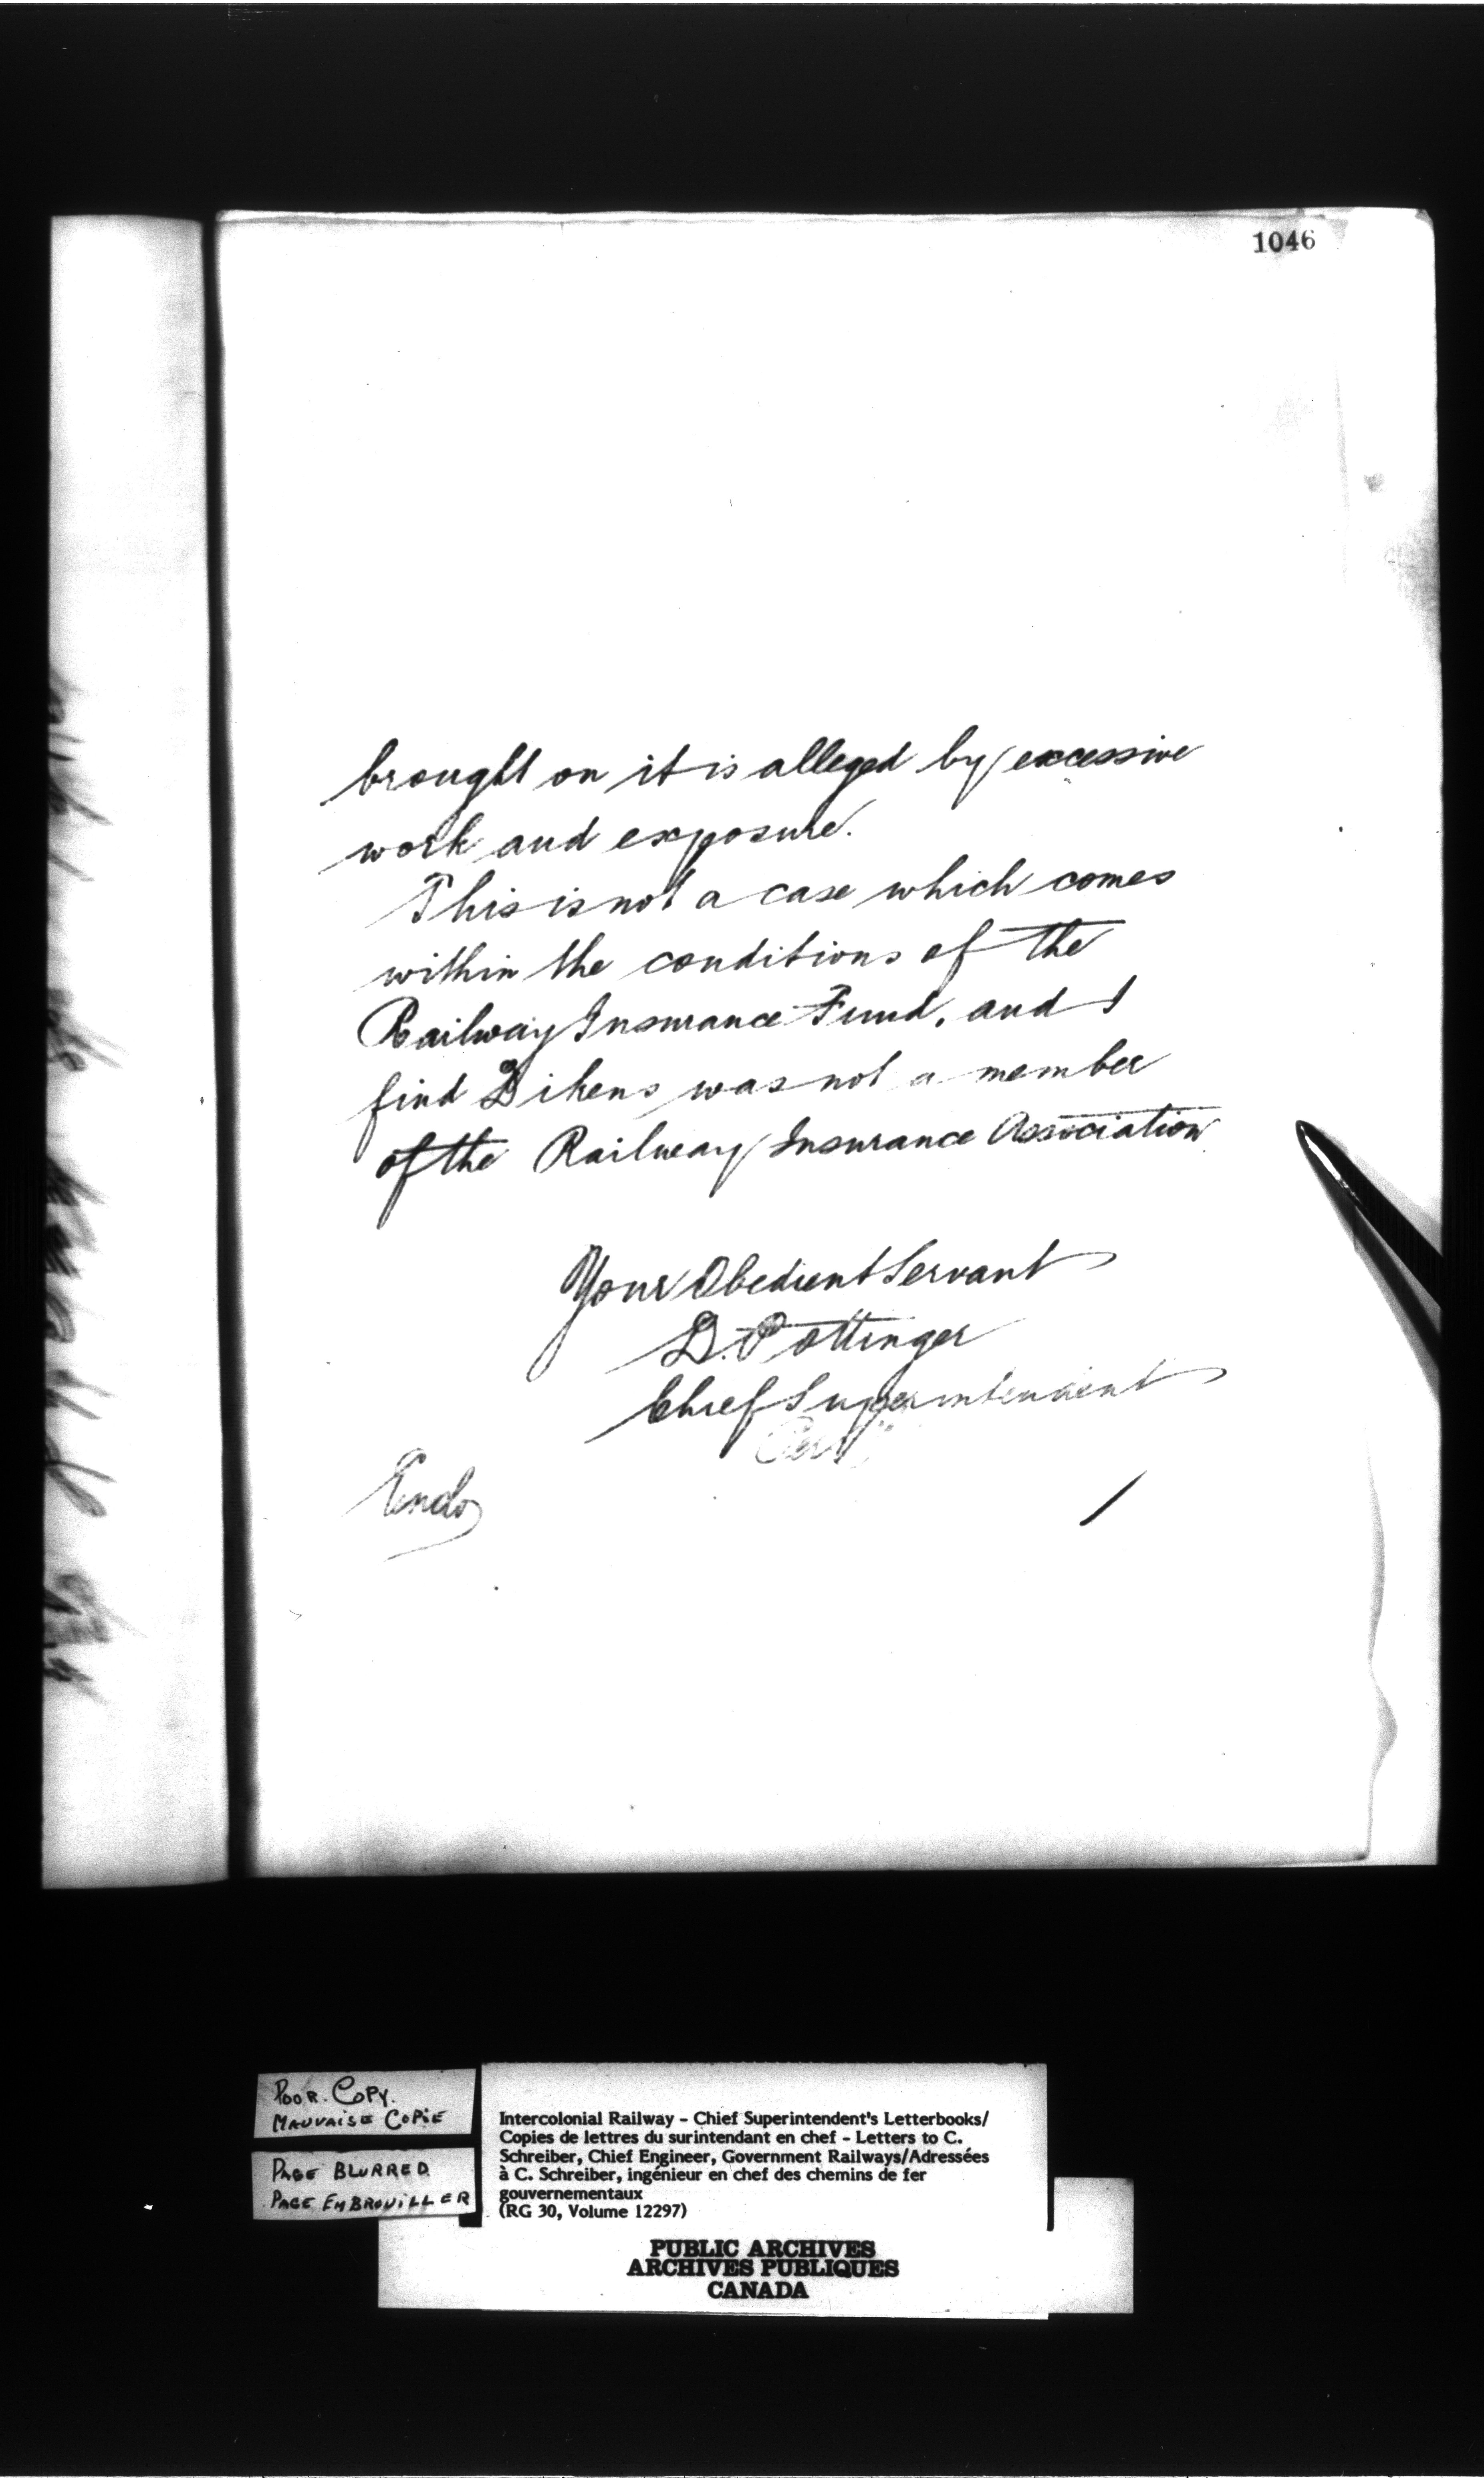 1046
brought on it is alleged by excessive
work and exposure.
This is not a case which comes
within the conditions of the
Railway Insurance Fund, and I
find Dikens was not a member
of the Railway Insurance Association
Your Obedient Servant
D. Pottinger
Chief Superintendent
Enclo
POOR COPY.
MAUVAISE COPIE
PAGE BLURRED
PAGE EMBROUILLER
Intercolonial Railway - Chief Superintendent's Letterbooks/
Copies de lettres du surintendant en chef - Letters to C.
Schreiber, Chief Engineer, Government Railways/Adressées
à C. Schreiber, ingénieur en chef des chemins de fer
gouvernementaux
(RG 30, Volume 12297)
PUBLIC ARCHIVES
ARCHIVES PUBLIQUES
CANADA